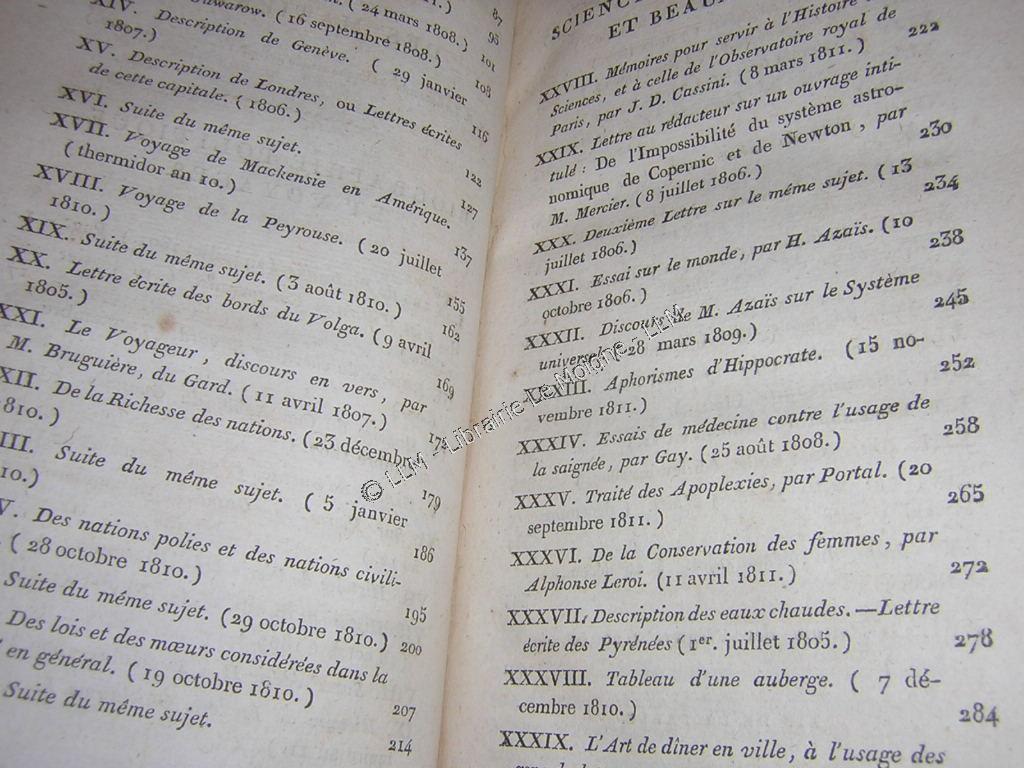 (24 mars 1808.) 87
(16 septembre 1808.) 95
XIV. Description de Genève. ( 29 janvier
1807.) 101
XV. Description de Londres, ou Lettres écrites
de cette capitale. ( 1806. ) 108
XVI. Suite du même sujet. 116
XVII. Voyage de Mackensie en Amérique.
( thermidor an 10. ) 122
XVIII. Voyage de la Peyrouse. ( 20 juillet
1810. ) 127
XIX. Suite du même sujet. ( 3 août 1810. ) 137
XX. Lettre écrite des bords du Volga. ( 9 avril
1805. ) 155
XXI. Le Voyageur, discours en vers, par 162
M. Bruguière, du Gard. ( 11 avril 1807. )
XII. De la Richesse des nations. ( 23 décembre 169
1810. )
III. Suite du même sujet. ( 5 janvier
10.) 179
V. Des nations polies et des nations civili-
( 28 octobre 1810. ) 186
Suite du même sujet. (29 octobre 1810.) 195
Des lois et des mœurs considérées dans la 200
en général. ( 19 octobre 1810. )
Suite du même sujet. 207
214
SCIENC
ET BEAU
XXVIII. Mémoires pour servir à l'Histoire
Sciences, et à celle de l'Observatoire royal de
Paris, par J. D. Cassini. (8 mars 1811.) 222
XXIX. Lettre au rédacteur sur un ouvrage inti-
tulé : De l'Impossibilité du système astro-
nomique de Copernic et de Newton, par
M. Mercier. (8 juillet 1806.) 230
XXX. Deuxième Lettre sur le même sujet. (13
juillet 1806.) 234
XXXI. Essai sur le monde, par H. Azaïs. (10
octobre 1806.) 238
XXXII. Discours de M. Azaïs sur le Système
universel. (28 mars 1809.) 245
XXXIII. Aphorismes d'Hippocrate. (15 no-
vembre 1811.) 252
XXXIV. Essais de médecine contre l'usage de
la saignée, par Gay. (25 août 1808.) 258
XXXV. Traité des Apoplexies, par Portal. (20
septembre 1811.) 265
XXXVI. De la Conservation des femmes, par
Alphonse Leroi. (11 avril 1811.) 272
XXXVII. Description des eaux chaudes.—Lettre
écrite des Pyrénées (1er. juillet 1805.) 278
XXXVIII. Tableau d'une auberge. ( 7 dé-
cembre 1810.) 284
XXXIX. L'Art de dîner en ville, à l'usage des
© LLM - Librairie Le Moloine - LLM